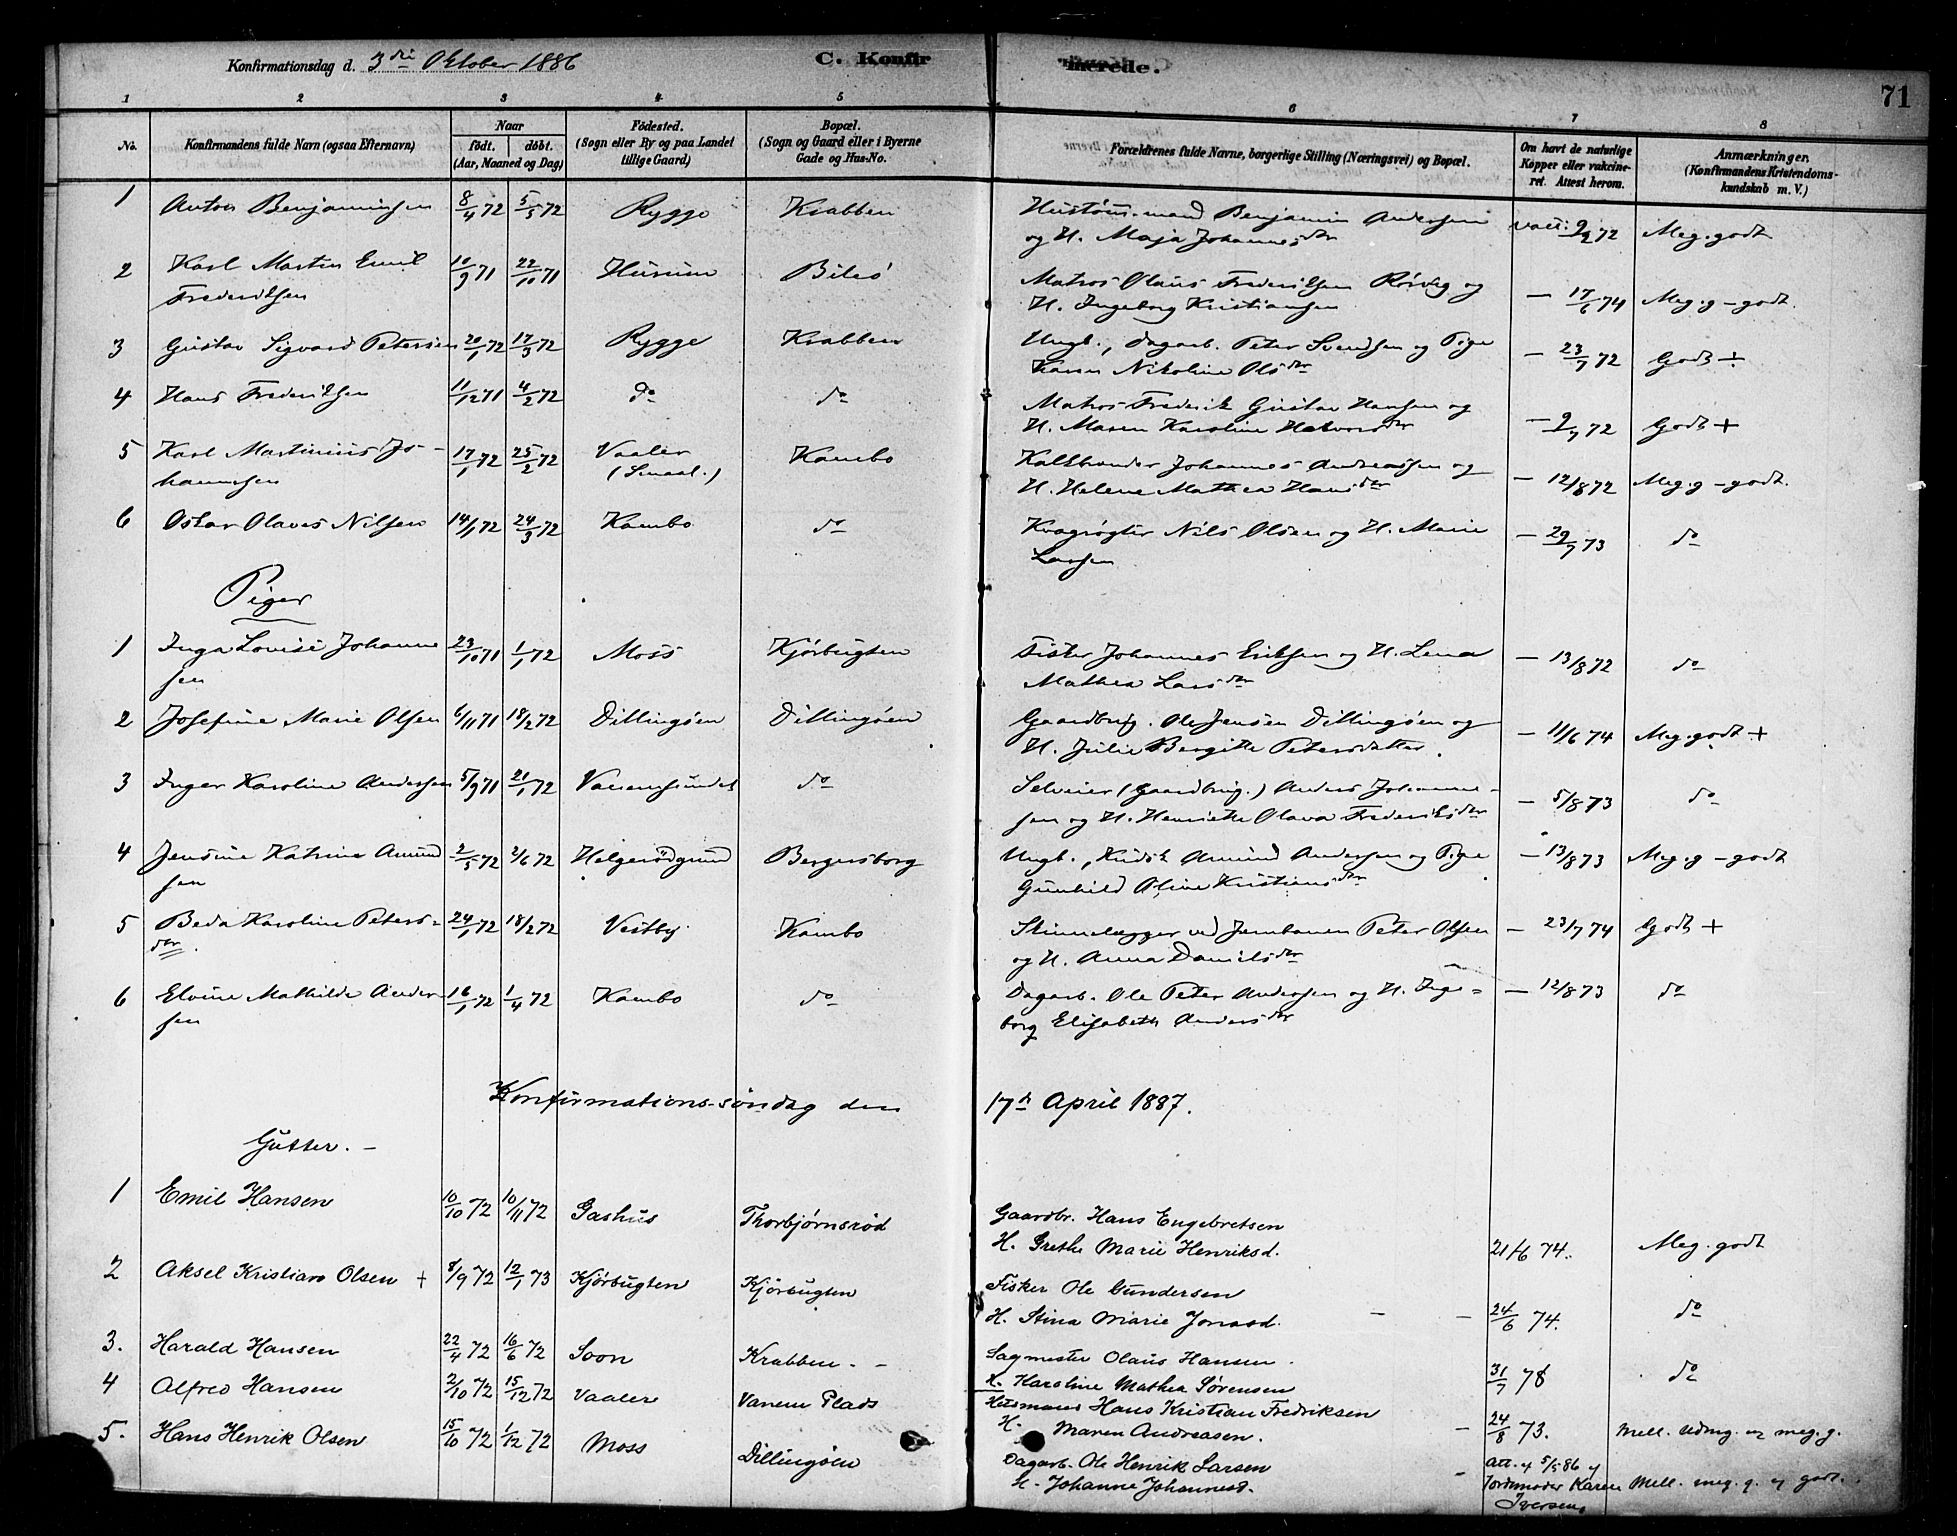 Konfirmationsdag d. 3die Oktober 1886 C. Konfirmerede. 71
1 2 3 4 5 6 7 8
No. Konfirmandens fulde Navn (ogsaa Efternavn) Naar født. døbt. (Aar, Maaned og Dag) Fødested. (Sogn eller By og paa Landet tillige Gaard) Bopæl. (Sogn og Gaard eller i Byerne Gade og Hus-No. Forældrenes fulde Navne, borgerlige Stilling (Næringsvei) og Bopæl. Om havt de naturlige Kopper eller vakcineret. Attest herom. Anmærkninger. (Konfirmandens Kristendomskundskab m. V.)
1 Anton Benjaminsen 8/4 72 5/5 72 Rygge Krabben Hustøms.mand Benjamin Andersen vacc. 9/9 72 Meg. godt
og H. Maja Johannesdtr
2 Karl Martin Emil 10/9 71 22/10 71 Hurum Bilesø Matros Olaus Frederiksen Rørvig og – 17/6 74 Meg. g – godt.
Frederiksen H. Ingeborg Kristiansen
3 Gustav Sigvard Petersen 20/1 72 17/3 72 Rygge Krabben Ungk., Dagarb. Peter Svendsen og Pige – 23/7 72 Godt +
Karen Nikoline Olsdtr
4 Hans Frederiksen 11/12 71 4/2 72 do do Matros Frederik Gustav Hansen og – 9/7 72 Godt +
H. Maren Karoline Halvorsdtr
5 Karl Martinius Jo- 17/1 72 25/2 72 Vaaler Kambo Kalkbrænder Johannes Andreassen og – 12/8 72 Meg. g – godt.
hannesen (Smaal.) H. Helene Mathea Hansdtr
6 Oskar Olaves Nilsen 14/1 72 24/3 72 Kambo do Kvægrøgter Nils Olsen og H. Marie – 29/7 73 do
Larsen
Piger
1 Inga Lovise Johanne 23/10 71 1/1 72 Moss Kjørbugten Fisker Johannes Eriksen og H. Lena – 13/8 72 do
sen Mathea Larsdtr
2 Josefine Marie Olsen 6/11 71 18/2 72 Dillingøen Dillingøen Gaardbrug. Ole Jensen Dillingøen og – 11/6 74 Meg. godt +
H. Julie Bergitte Petersdatter.
3 Inger Karoline Andersen 5/9 71 21/1 72 Vanemsundet do Selveier (Gaardbrug.) Anders Johanne- – 5/8 73 do
sen og H. Henriette Olava Frederiksdtr
4 Jensine Katrine Amund 2/5 72 2/6 72 Helgerødgrund Bergersborg Ungk., Kudsk Amund Andersen og Pige – 13/8 73 Meg. g – godt
sen Gunhild Oline Kristiansdtr
5 Beda Karoline Peters- 24/1 72 18/2 72 Vestby Kambo Skinnelægger ved Jernbanen Peter Olsen – 23/7 74 Godt +
dtr. og H. Anna Danielsdtr
6 Elvine Mathilde Ander- 16/1 72 1/4 72 Kambo do Dagarb. Ole Peter Andersen og H. Inge- – 12/8 73 do
sen borg Elisabeth Andersdtr
Konfirmations-søndag den 17de April 1887.
Gutter. –
1 Emil Hansen 10/10 72 10/11 72 Gashus Thorbjørnsrød Gaardbr. Hans Engebretsen
H. Grethe Marie Henriksd. 21/6 74. Meg. godt
2 Aksel Kristian Olsen + 8/9 72 12/1 73 Kjørbugten Kjørbugten Fisker Ole Gundersen
H. Stina Marie Jonasd. – – 24/6 74. do
3. Harald Hansen 22/4 72 16/6 72 Soon Krabben. – Sagmester Olaus Hansen.
H. Karoline Mathea Sørensen 31/7 78 do
4 Alfred Hansen 2/10 72 15/12 72 Vaaler Vanem Plads Husmand Hans Kristian Fredriksen
H. Maren Andreasen. – 24/8 73. Mell. udmg. og meg. g.
5. Hans Henrik Olsen 15/10 72 1/12 72 Moss Dillingøen Dagarb. Ole Henrik Larsen
H. Johanne Johannesd. – Att. af 5/5 86 af
Jordmoder Karen Mell. meg. g. og godt.
Iversen